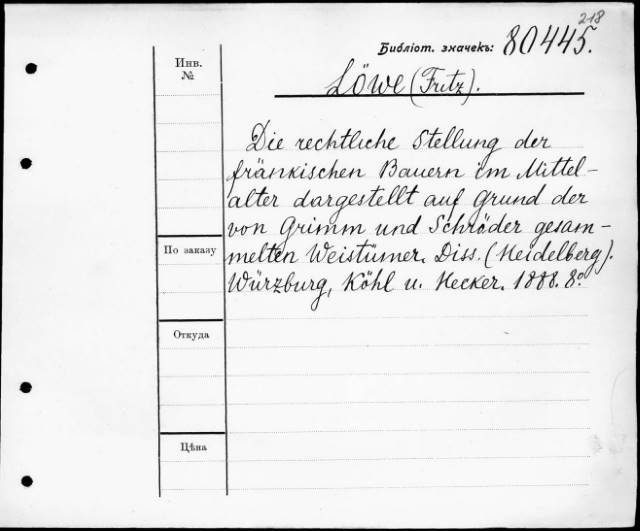 218
Библіот. значекъ: 80445.
Инв.
№
Löwe (Fritz).
Die rechtliche Stellung der
fränkischen Bauern im Mittel-
alter dargestellt auf Grund der
von Grimm und Schröder gesam-
melten Weistümer. Diss. (Heidelberg).
Würzburg, Köhl u. Hecker. 1888. 8º
По заказу
Откуда
Цѣна